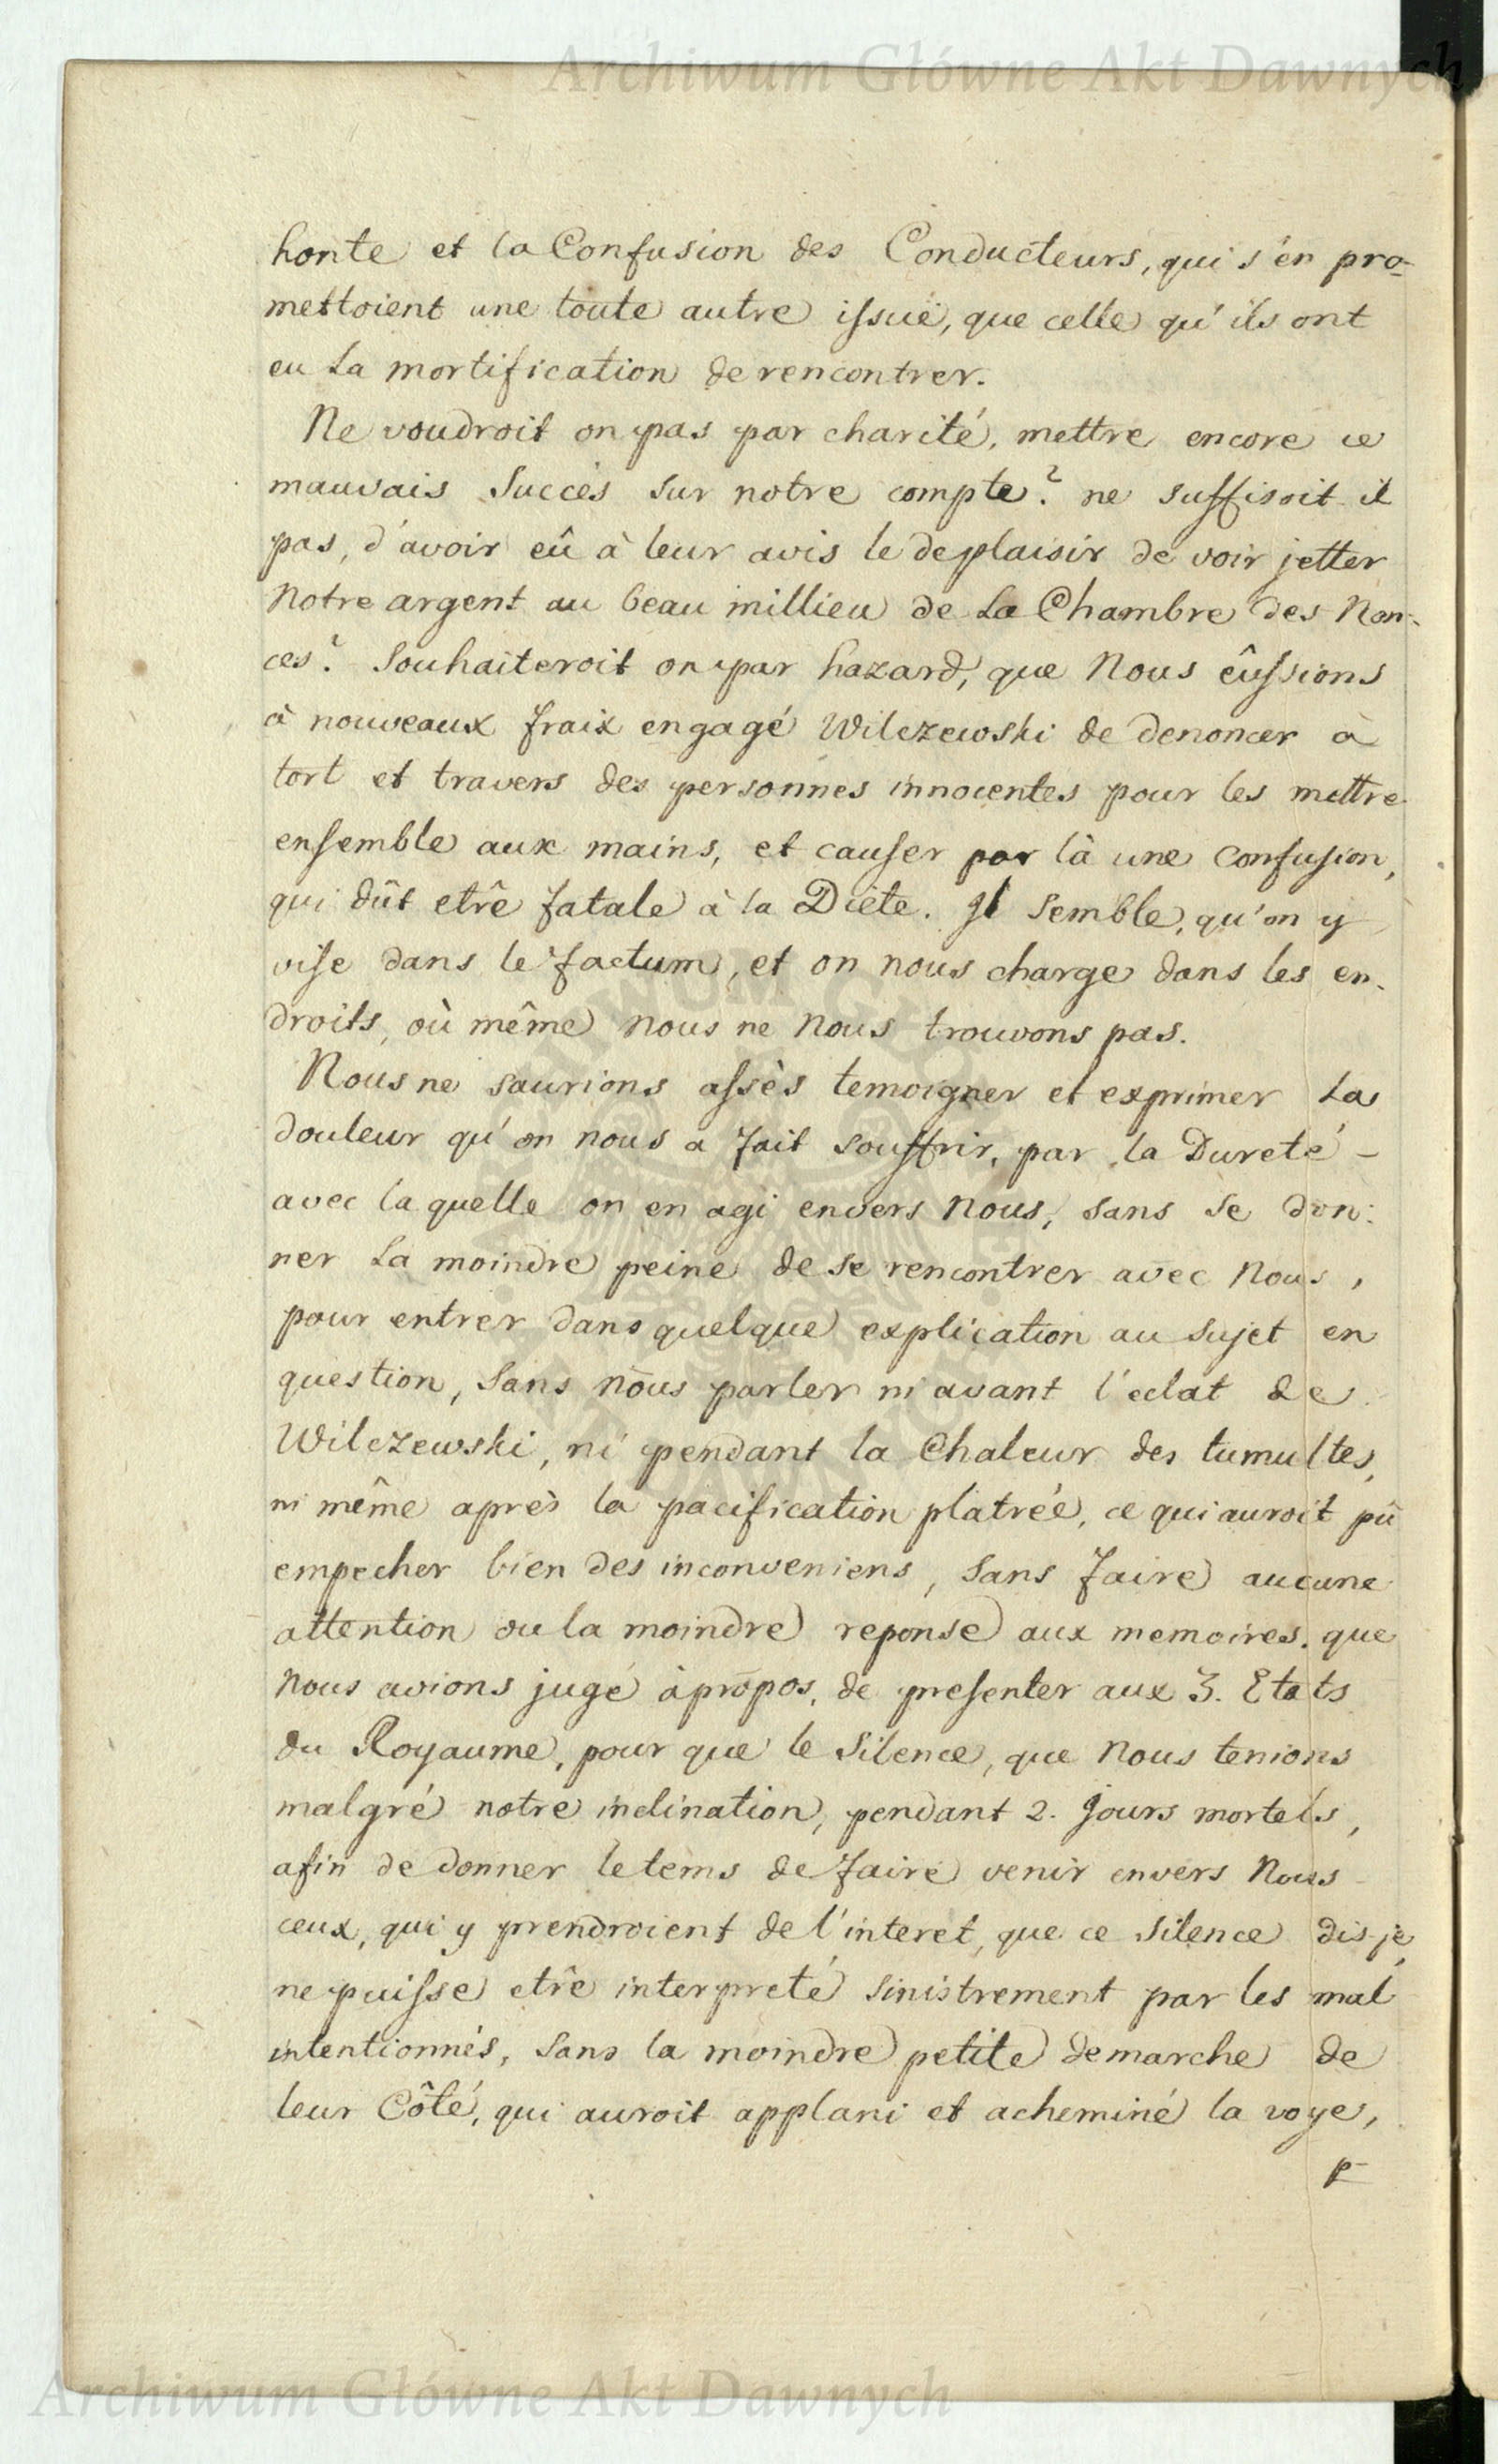 Archiwum Główne Akt Dawnych
honte et la Confusion des Conducteurs, qui s'en pro-
mettoient une toute autre issuë, que celle qu'ils ont
eu la mortification de rencontrer.
Ne voudroit on pas par charité, mettre encore ce
mauvais Succès sur notre compte? ne suffisoit il
pas, d'avoir eû à leur avis le deplaisir de voir jetter
Notre argent au beau millieu de la Chambre des Non-
ces? Souhaiteroit on par hazard, que Nous eûssions
à nouveaux fraix engagé Wilczewski de denoncer à
tort et travers des personnes innocentes pour les mettre
ensemble aux mains, et causer par là une confusion,
qui dût etrê fatale à la Diète. Il semble, qu'on y
vise dans le factum, et on nous charge dans les en-
droits, où même nous ne nous trouvons pas.
Nous ne saurions assès temoigner et exprimer la
douleur qu'on nous a fait souffrir, par la Dureté -
avec la quelle on en agi envers Nous, sans se don-
ner la moindre peine de se rencontrer avec Nous,
pour entrer dans quelque explication au sujet en
question, sans nous parler ni avant l'eclat de
Wilczewski, ni pendant la Chaleur des tumultes,
ni même après la pacification platrée, ce qui auroit pû
empecher bien des inconveniens, sans faire aucune
attention ou la moindre reponse aux memoires. que
Nous avions jugé àpropos, de presenter aux 3. Etats
du Royaume, pour que le Silence, que Nous tenions
malgré notre inclination, pendant 2. Jours mortels,
afin de donner le tems de faire venir envers Nous
ceux, qui y prendroient de l'interet, que ce Silence dis-je,
ne puisse etrê interpreté sinistrement par les mal
intentionnés, sans la moindre petite demarche de
leur Côté, qui auroit applani et acheminé la voye,
p-
Archiwum Główne Akt Dawnych